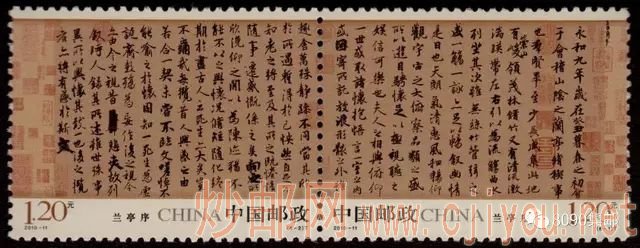 永和九年歲在癸丑暮春之初會
于會稽山陰之蘭亭脩稧事
也羣賢畢至少長咸集此地
有崇山峻領茂林脩竹又有清流激
湍暎帶左右引以為流觴曲水
列坐其次雖無絲竹管弦之
盛一觴一詠亦足以暢敘幽情
是日也天朗氣清惠風和暢仰
觀宇宙之大俯察品類之盛
所以遊目騁懷足以極視聽之
娛信可樂也夫人之相與俯仰
一世或取諸懷抱悟言一室之內
或因寄所託放浪形骸之外雖
趣舍萬殊靜躁不同當其欣
於所遇蹔得於己怏然自足不
知老之將至及其所之既惓情
隨事遷感慨係之矣向之所
欣俛仰之閒以為陳迹猶不
能不以之興懷況脩短隨化終
期於盡古人云死生亦大矣豈
不痛哉每攬昔人興感之由
若合一契未嘗不臨文嗟悼不
能喻之於懷固知一死生為虛
誕齊彭殤為妄作後之視今
亦由今之視昔悲夫故列
敘時人錄其所述雖世殊事
異所以興懷其致一也後之攬
者亦將有感於斯文
1.20元 兰亭序 CHINA 中国邮政
2010-11
中国邮政 CHINA 兰亭序 1.20元
2010-11
炒邮网 www.cjiyou.net